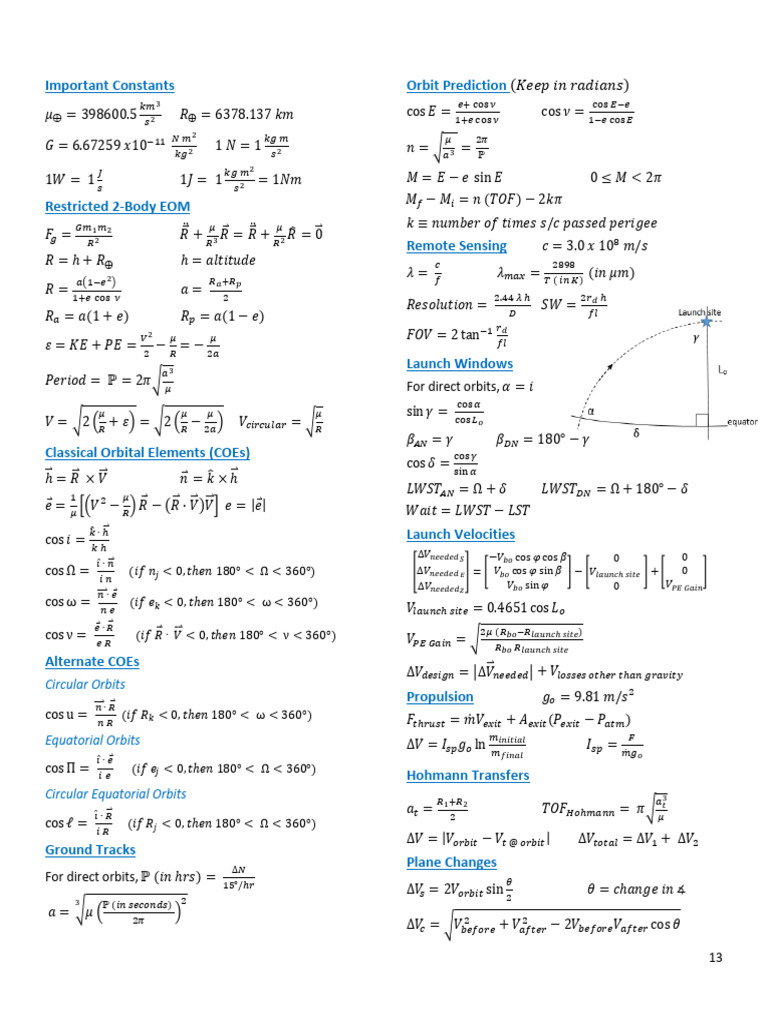 Important Constants
μ⊕ = 398600.5 km³/s² R⊕ = 6378.137 km
G = 6.67259 x10⁻¹¹ N m²/kg² 1 N = 1 kg m/s²
1W = 1 J/s 1J = 1 kg m²/s² = 1Nm
Restricted 2-Body EOM
F_g = Gm₁m₂/R² R⃗̈ + μ/R³ R⃗ = R⃗̈ + μ/R² R̂ = 0⃗
R = h + R⊕ h = altitude
R = a(1−e²)/(1+e cos ν) a = (R_a+R_p)/2
R_a = a(1 + e) R_p = a(1 − e)
ε = KE + PE = V²/2 − μ/R = − μ/2a
Period = ℙ = 2π√(a³/μ)
V = √(2(μ/R + ε)) = √(2(μ/R − μ/2a)) V_circular = √(μ/R)
Classical Orbital Elements (COEs)
h⃗ = R⃗ × V⃗ n⃗ = k̂ × h⃗
e⃗ = 1/μ [(V² − μ/R)R⃗ − (R⃗ · V⃗)V⃗] e = |e⃗|
cos i = k̂ · h⃗ / k h
cos Ω = î · n⃗ / i n (if n_j < 0, then 180° < Ω < 360°)
cos ω = n⃗ · e⃗ / n e (if e_k < 0, then 180° < ω < 360°)
cos ν = e⃗ · R⃗ / e R (if R⃗ · V⃗ < 0, then 180° < ν < 360°)
Alternate COEs
Circular Orbits
cos u = n⃗ · R⃗ / n R (if R_k < 0, then 180° < ω < 360°)
Equatorial Orbits
cos Π = î · e⃗ / i e (if e_j < 0, then 180° < Ω < 360°)
Circular Equatorial Orbits
cos ℓ = î · R⃗ / i R (if R_j < 0, then 180° < Ω < 360°)
Ground Tracks
For direct orbits, ℙ (in hrs) = ΔN / 15°/hr
a = ∛(μ(ℙ (in seconds)/2π)²)
Orbit Prediction (Keep in radians)
cos E = (e+ cos ν)/(1+e cos ν) cos ν = (cos E−e)/(1−e cosE)
n = √(μ/a³) = 2π/ℙ
M = E − e sin E 0 ≤ M < 2π
M_f − M_i = n (TOF) − 2kπ
k ≡ number of times s/c passed perigee
Remote Sensing c = 3.0 x 10⁸ m/s
λ = c/f λ_max = 2898 / T (in K) (in μm)
Resolution = 2.44 λ h / D SW = 2r_d h / fl
FOV = 2 tan⁻¹ r_d/fl
Launch Windows
For direct orbits, α = i
sin γ = cos α / cos L_o
β_AN = γ β_DN = 180° − γ
cos δ = cos γ / sin α
LWST_AN = Ω + δ LWST_DN = Ω + 180° − δ
Wait = LWST − LST
Launch site
γ
L_o
α
equator
δ
Launch Velocities
[ΔV_needed_S ΔV_needed_E ΔV_needed_Z] = [−V_bo cos φ cos β V_bo cos φ sin β V_bo sin φ] − [0 V_launch site 0] + [0 0 V_PE Gain]
V_launch site = 0.4651 cos L_o
V_PE Gain = √(2μ (R_bo−R_launch site) / R_bo R_launch site)
ΔV_design = |ΔV⃗_needed| + V_losses other than gravity
Propulsion g_o = 9.81 m/s²
F_thrust = ṁV_exit + A_exit(P_exit − P_atm)
ΔV = I_sp g_o ln m_initial/m_final I_sp = F/ṁg_o
Hohmann Transfers
a_t = (R₁+R₂)/2 TOF_Hohmann = π√(a_t³/μ)
ΔV = |V_orbit − V_t @ orbit| ΔV_total = ΔV₁ + ΔV₂
Plane Changes
ΔV_s = 2V_orbit sin θ/2 θ = change in ∡
ΔV_c = √(V²_before + V²_after − 2V_before V_after cos θ)
13